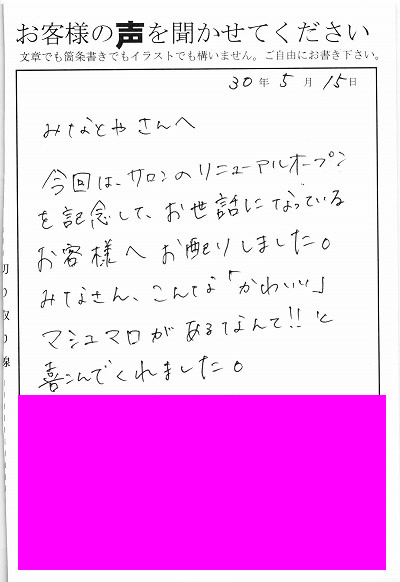 お客様の声を聞かせてください
文章でも箇条書きでもイラストでも構いません。ご自由にお書き下さい。
30年5月15日
みなとやさんへ
今回は、サロンのリニューアルオープン
を記念して、お世話になっている
お客様へお配りしました。
みなさん、こんな「かわいい」
マシュマロがあるなんて!!と
喜こんでくれました。
切り取り線